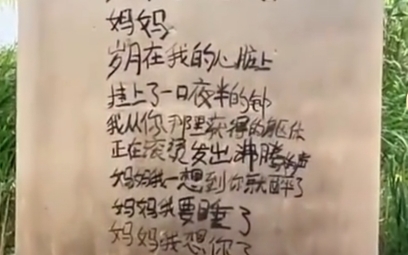 妈妈
岁月在我的心脏上
挂上了一口夜半的钟
我从你那里获得的躯体
正在滚烫发出沸腾的声
妈妈我一想到你就醉了
妈妈我要睡了
妈妈我想你了